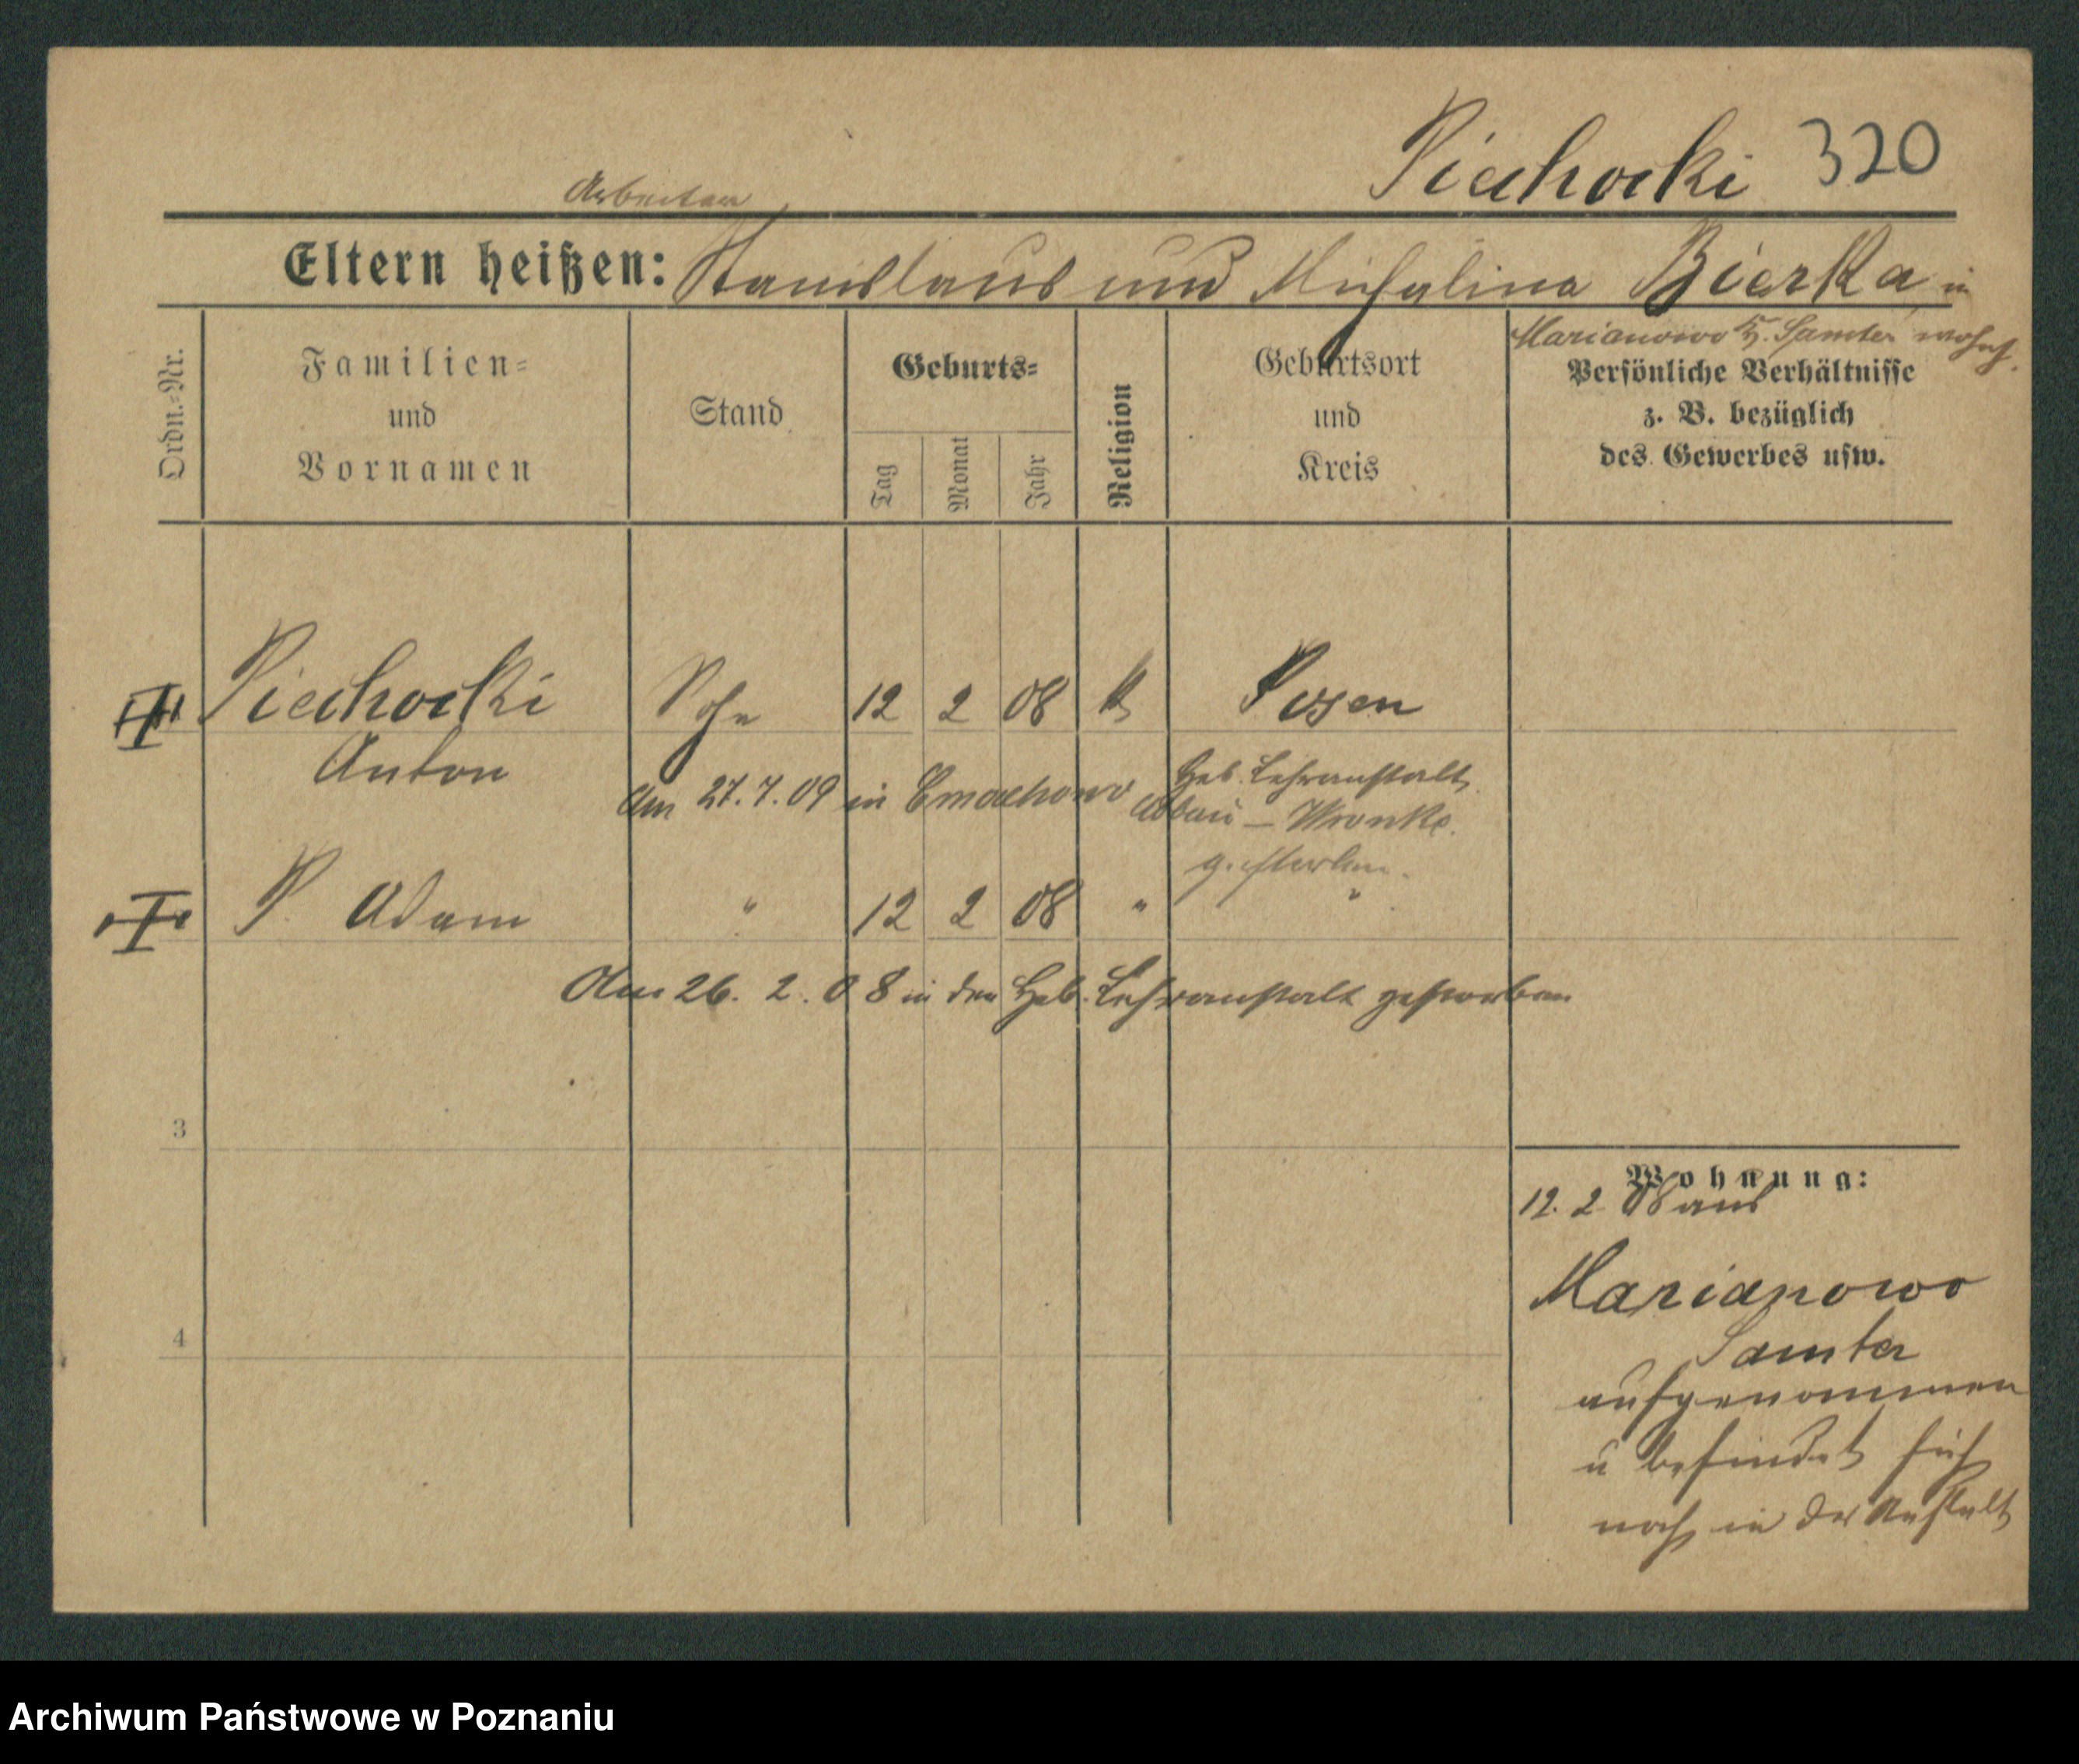 Piechocki 320
Arbeiter
Eltern heißen: Stanislaus und Michalina Bierka in
Marianowo K. Samter wohnh.
Ordn.-Nr.
Familien-
und
Vornamen
Stand
Geburts-
Tag
Monat
Jahr
Religion
Geburtsort
und
Kreis
Persönliche Verhältnisse
z. B. bezüglich
des Gewerbes usw.
Piechocki Sohn 12 2 08 k Posen
Anton
Heb. Lehranstalt
Am 27.7.09 in Cmachowo
Abbau – Wronke
gestorben.
P. Adam " 12 2 08 " "
Am 26. 2. 08 in der Heb. Lehranstalt gestorben
3
Wohnung:
12. 2 08 aus
Marianowo
Samter
4
aufgenommen
u befindet sich
noch in der Anstalt
Archiwum Państwowe w Poznaniu